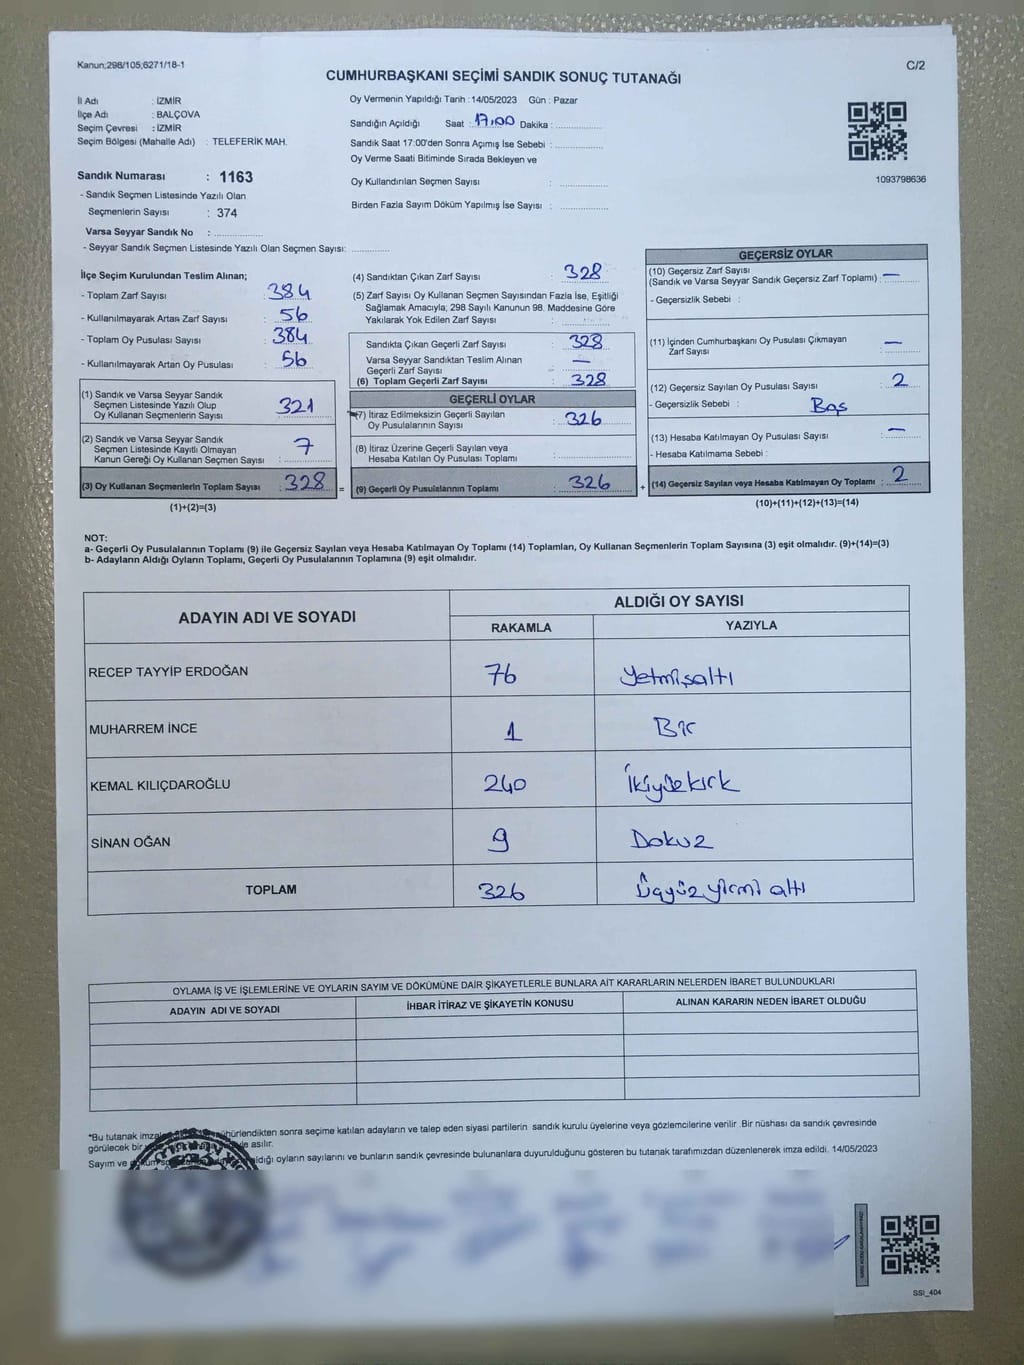 Kanun;298/105;6271/18-1
C/2
CUMHURBAŞKANI SEÇİMİ SANDIK SONUÇ TUTANAĞI
İl Adı : İZMİR
İlçe Adı : BALÇOVA
Seçim Çevresi : İZMİR
Seçim Bölgesi (Mahalle Adı) : TELEFERİK MAH.
Sandık Numarası : 1163
- Sandık Seçmen Listesinde Yazılı Olan
Seçmenlerin Sayısı : 374
Varsa Seyyar Sandık No : ..............
- Seyyar Sandık Seçmen Listesinde Yazılı Olan Seçmen Sayısı: ............
Oy Vermenin Yapıldığı Tarih : 14/05/2023 Gün : Pazar
Sandığın Açıldığı Saat : 17,00 Dakika : ..............
Sandık Saat 17:00'den Sonra Açımış İse Sebebi : ..............
Oy Verme Saati Bitiminde Sırada Bekleyen ve
Oy Kullandırılan Seçmen Sayısı : ..............
Birden Fazla Sayım Döküm Yapılmış İse Sayısı : ..............
1093798636
İlçe Seçim Kurulundan Teslim Alınan;
- Toplam Zarf Sayısı : 384
- Kullanılmayarak Artan Zarf Sayısı : 56
- Toplam Oy Pusulası Sayısı : 384
- Kullanılmayarak Artan Oy Pusulası : 56
(1) Sandık ve Varsa Seyyar Sandık
Seçmen Listesinde Yazılı Olup
Oy Kullanan Seçmenlerin Sayısı : 321
(2) Sandık ve Varsa Seyyar Sandık
Seçmen Listesinde Kayıtlı Olmayan
Kanun Gereği Oy Kullanan Seçmen Sayısı : 7
(3) Oy Kullanan Seçmenlerin Toplam Sayısı : 328 =
(1)+(2)=(3)
(4) Sandıktan Çıkan Zarf Sayısı : 328
(5) Zarf Sayısı Oy Kullanan Seçmen Sayısından Fazla İse, Eşitliği
Sağlamak Amacıyla; 298 Sayılı Kanunun 98. Maddesine Göre
Yakılarak Yok Edilen Zarf Sayısı : ..............
Sandıkta Çıkan Geçerli Zarf Sayısı : 328
Varsa Seyyar Sandıktan Teslim Alınan
Geçerli Zarf Sayısı : —
(6) Toplam Geçerli Zarf Sayısı : 328
GEÇERLİ OYLAR
(7) İtiraz Edilmeksizin Geçerli Sayılan
Oy Pusulalarının Sayısı : 326
(8) İtiraz Üzerine Geçerli Sayılan veya
Hesaba Katılan Oy Pusulası Toplamı : ..............
(9) Geçerli Oy Pusulalarının Toplamı : 326 +
GEÇERSİZ OYLAR
(10) Geçersiz Zarf Sayısı
(Sandık ve Varsa Seyyar Sandık Geçersiz Zarf Toplamı) : —
- Geçersizlik Sebebi :
(11) İçinden Cumhurbaşkanı Oy Pusulası Çıkmayan
Zarf Sayısı : —
(12) Geçersiz Sayılan Oy Pusulası Sayısı : 2
- Geçersizlik Sebebi : Boş
(13) Hesaba Katılmayan Oy Pusulası Sayısı : —
- Hesaba Katılmama Sebebi :
(14) Geçersiz Sayılan veya Hesaba Katılmayan Oy Toplamı : 2
(10)+(11)+(12)+(13)=(14)
NOT:
a- Geçerli Oy Pusulalarının Toplamı (9) ile Geçersiz Sayılan veya Hesaba Katılmayan Oy Toplamı (14) Toplamları, Oy Kullanan Seçmenlerin Toplam Sayısına (3) eşit olmalıdır. (9)+(14)=(3)
b- Adayların Aldığı Oyların Toplamı, Geçerli Oy Pusulalarının Toplamına (9) eşit olmalıdır.
ADAYIN ADI VE SOYADI ALDIĞI OY SAYISI
RAKAMLA YAZIYLA
RECEP TAYYİP ERDOĞAN 76 Yetmişaltı
MUHARREM İNCE 1 Bir
KEMAL KILIÇDAROĞLU 240 İkiyüzkırk
SİNAN OĞAN 9 Dokuz
TOPLAM 326 Üçyüz yirmi altı
OYLAMA İŞ VE İŞLEMLERİNE VE OYLARIN SAYIM VE DÖKÜMÜNE DAİR ŞİKAYETLERLE BUNLARA AİT KARARLARIN NELERDEN İBARET BULUNDUKLARI
ADAYIN ADI VE SOYADI İHBAR İTİRAZ VE ŞİKAYETİN KONUSU ALINAN KARARIN NEDEN İBARET OLDUĞU
*Bu tutanak sonra seçime katılan adayların ve talep eden siyasi partilerin sandık kurulu üyelerine veya gözlemcilerine verilir. Bir nüshası da sandık çevresinde
görülecek bir asılır.
Sayım ve oyların sayılarını ve bunların sandık çevresinde bulunanlara duyurulduğunu gösteren bu tutanak tarafımızdan düzenlenerek imza edildi. 14/05/2023
SSI_404